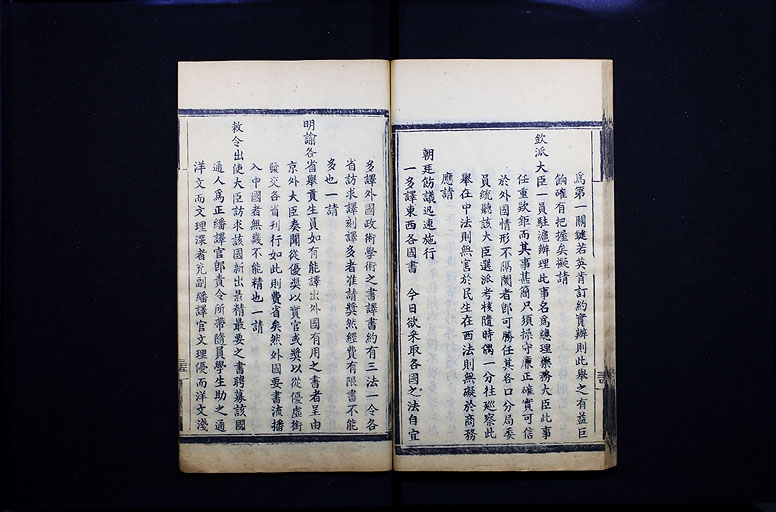 為第一關鍵若英肯訂約實辦則此舉之有益巨
餉確有把握矣擬請
欽派大臣一員駐滬辦理此事名為總理藥務大臣此事
任重欵鉅而其事甚簡只須操守廉正確實可信
於外國情形不隔閡者即可勝任其各口分局委
員統聽該大臣選派考核隨時偶一分往廵察此
舉在中法則無害於民生在西法則無礙於商務
應請
朝廷飭議迅速施行
一多譯東西各國書 今日欲采取各國之法自宜
多譯外國政術學術之書譯書約有三法一令各
省訪求譯刻譯多者准請獎然經費有限書不能
多也一請
明諭各省舉貢生員如有能譯出外國有用之書者呈由
京外大臣奏聞從優獎以實官或獎以從優虛銜
發交各省刊行如此則費省矣然外國要書流播
入中國者無幾不能精也一請
敕令出使大臣訪求該國新出最精最要之書聘募該國
通人為正繙譯官即責令所帶隨員學生助之通
洋文而文理深者充副繙譯官文理優而洋文淺